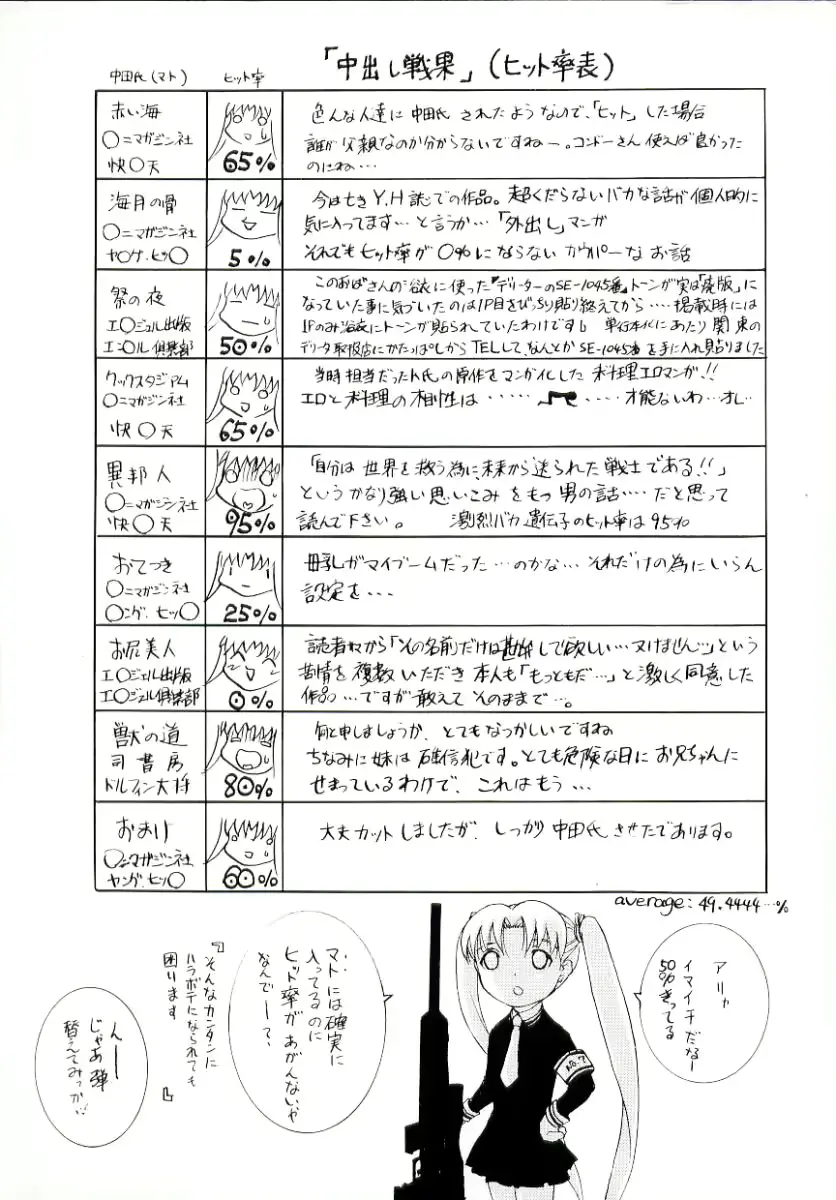 「中出し戦果」(ヒット率表)
中田氏(マト)
ヒット率
赤い海
○ニマガジン社
快○天
65%
色んな人達に中田氏されたようなので、「ヒット」した場合
誰が父親なのか分からないですねー。コンドーさん使えば良かった
のにね…
海月の骨
○ニマガジン社
ヤ○グ.ヒッ○
5%
今は亡きY.H誌での作品。超くだらないバカな話が個人的に
気に入ってます…と言うか…「外出し」マンガ
それでもヒット率が0%にならないカウパーなお話
祭の夜
エ○ジェル出版
エン○ル倶楽部
50%
このおばさんの浴衣に使った『デリーターのSE-1045番』トーンが実は「廃版」に
なっていた事に気づいたのは1P目をびっちり貼り終えてから…掲載時には
1Pのみ浴衣にトーンが貼られていたわけです。単行本化にあたり関東の
デリータ取扱店にかたっぱしからTELして、なんとかSE-1045番を手に入れ貼りました
クックスタジアム
○ニマガジン社
快○天
65%
当時担当だったト氏の原作をマンガ化した料理エロマンガ!!
エロと料理の相性は……
……才能ないわ…オレ…
異邦人
○ニマガジン社
快○天
95%
「自分は世界を救う為に、未来から送られた戦士である!!」
というかなり強い思いこみをもつ男の話…だと思って
読んで下さい。 激烈バカ遺伝子のヒット率は95%
おてつき
○ニマガジン社
○ング.ヒッ○
25%
母乳がマイブームだった…のかな…それだけの為にいらん
設定を…
お尻美人
エ○ジェル出版
エ○ジェル倶楽部
0%
読者様から「その名前だけは勘弁して欲しい…ヌけません…」という
苦情を複数いただき本人も「もっともだ…」と激しく同意した
作品…ですが敢えてそのままで…。
獣の道
司書房
ドルフィン大将
80%
何と申しましょうか、とてもなつかしいですね
ちなみに妹は確信犯です。とても危険な日にお兄ちゃんに
せまっているわけで、これはもう…
おまけ
○ニマガジン社
ヤング.ヒッ○
60%
大丈カットしましたが、しっかり中田氏させたであります。
average:49.4444…%
アリャ
イマイチだなー
50%きってる
マトには確実に
入ってるのに
ヒット率が
あがんないや
なんでー?、
『そんなカンタンに
ハラボテになられても
困ります』
んー
じゃあ弾
替えてみっか!!